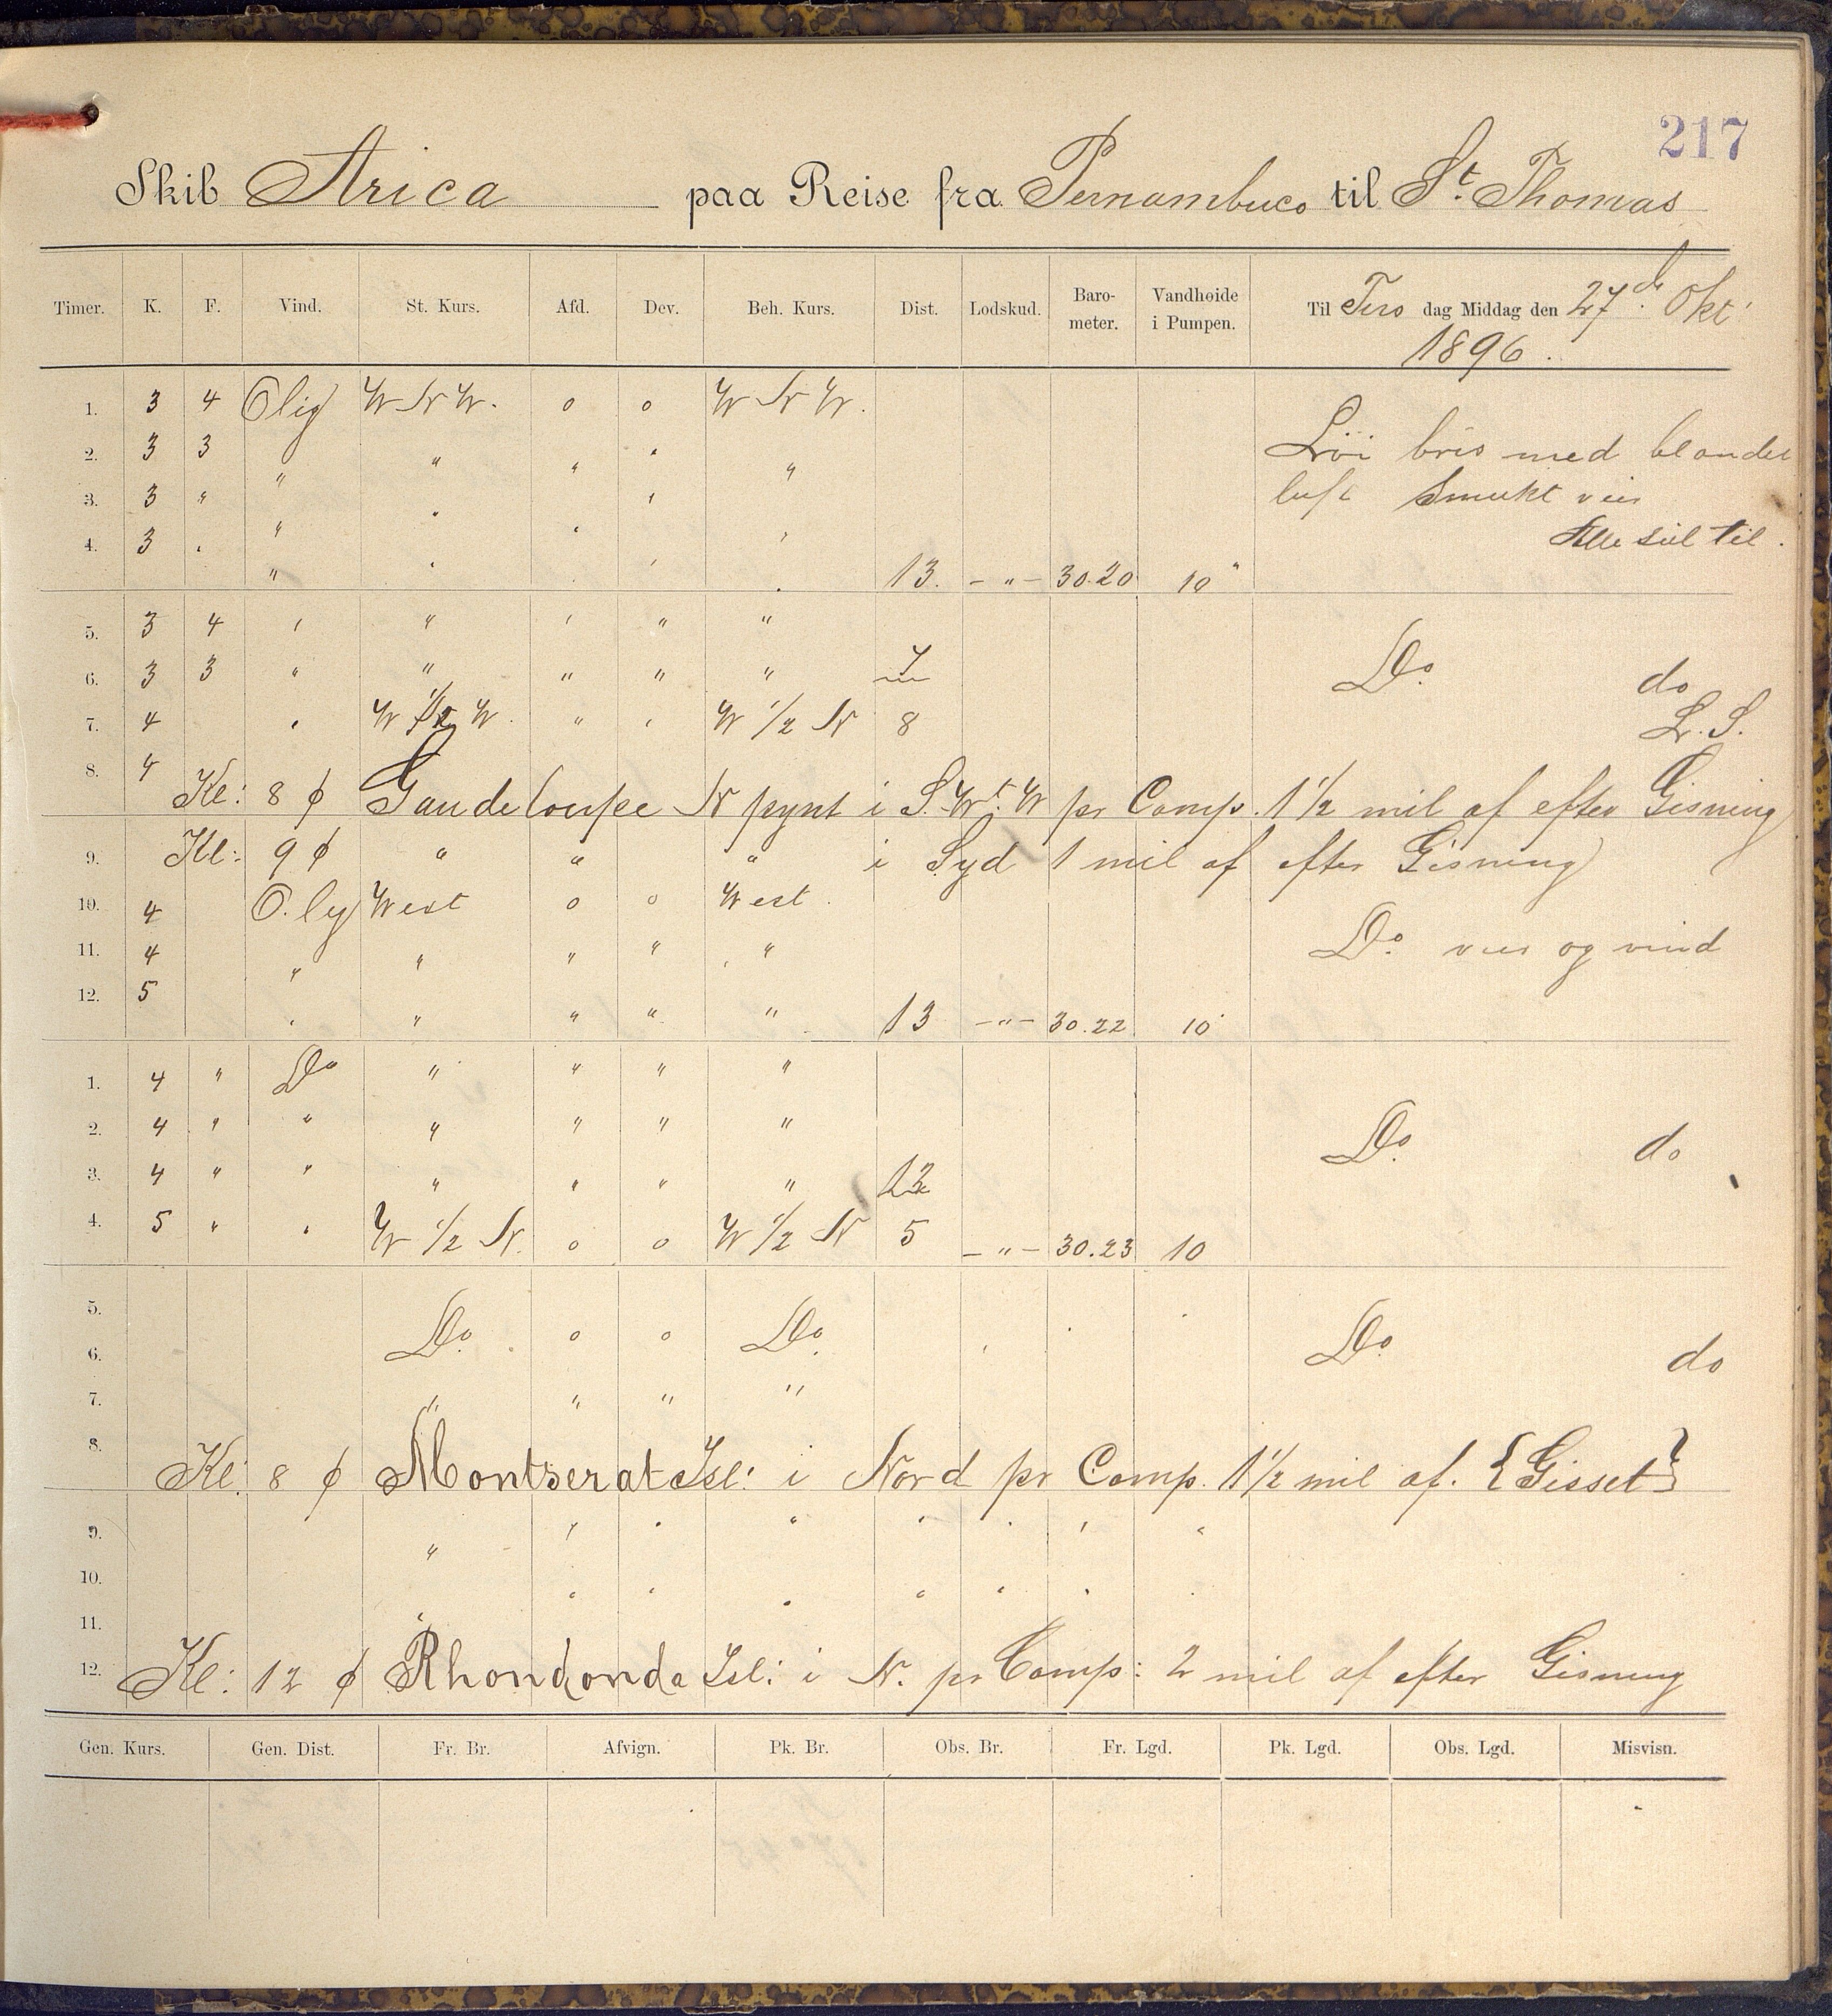 217
Skib Arica paa Reise fra Pernambuco til St. Thomas
Timer. K. F. Vind. St. Kurs. Afd. Dev. Beh. Kurs. Dist. Lodskud. Baro-meter. Vandhøide i Pumpen. Til Tirs dag Middag den 27d. Okt 1896.
1. 3 4 Olig W N W. 0 0 W N W.
2. 3 3 " " " " " Löi bris med blandet
3. 3 " " " " " " luft Smukt veir
4. 3 " " " " " " 13. — " — 30.20 10 " Alle seil til.
5. 3 4 " " " " "
6. 3 3 " " " " " 7 Do. do
7. 4 " W 1/2 W. " " W 1/2 N 8 L. S.
8. 4
Kl: 8 ϕ Gaudeloupe N pynt i S.Wt.W pr Comp. 1 1/2 mil af efter Gisning
9. Kl: 9 ϕ " " " i Syd 1 mil af efter Gisning
10. 4 O.lig West 0 0 West.
11. 4 " " " " " Do. veir og vind
12. 5 " " " " " 13 — " — 30.22 10
1. 4 " Do " " " "
2. 4 " " " " " " Do. do
3. 4 " " " " " " 12
4. 5 " " W 1/2 N. 0 0 W 1/2 N 5 — " — 30.23 10
5.
6. Do. 0 0 Do. Do. do
7. " " " "
8.
Kl: 8 ϕ Montserat Isl: i Nord pr Comp. 1 1/2 mil af. {Gisset}
9. " " " " " " " "
10. " " " " " " "
11.
12. Kl: 12 ϕ Rhondonda Isl: i N. pr Comp: 2 mil af efter Gisning
Gen. Kurs. Gen. Dist. Fr. Br. Afvign. Pk. Br. Obs. Br. Fr. Lgd. Pk. Lgd. Obs. Lgd. Misvisn.